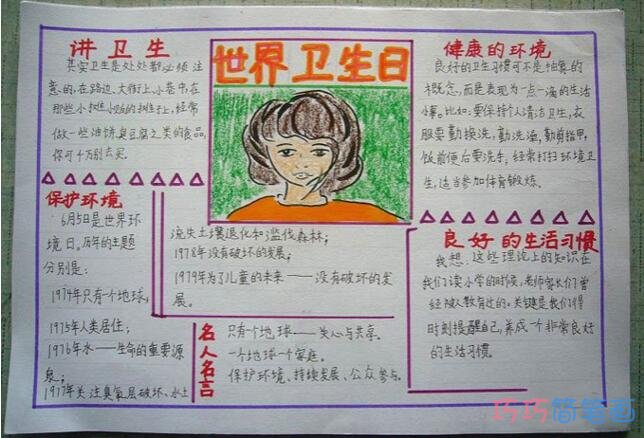 世界卫生日
讲卫生
其实卫生是处处都必须注
意的,在路边、大街上、小巷中,在
那些小摊小贩的摊上,经常
做一些油饼、臭豆腐之类的食品,
你可千万别去买。
保护环境
6月5日是世界环
境日。历年的主题
分别是:
1974年只有一个地球;
1975年人类居住;
1976年水——生命的重要源
泉;
1977年关注臭氧层破坏、水土
流失土壤退化和滥伐森林;
1978年没有破坏的发展;
1979年为了儿童的未来——没有破坏的发
展。
名人名言
只有一个地球——关心与共享。
一个地球一个家庭。
保护环境、持续发展、公众参与。
健康的环境
良好的卫生习惯可不是抽象的
概念,而是表现为一点一滴的生活
小事。比如:要保持个人清洁卫生,衣
服要勤换洗,勤洗澡,勤剪指甲,
饭前便后要洗手,经常打扫环境卫
生,适当参加体育锻炼。
良好的生活习惯
我想,这些理论上的知识在
我们读小学的时候,老师家长们曾
经被人教育过的。关键是我们得
时刻提醒自己,养成一个非常良好
的生活习惯。
巧巧简笔画